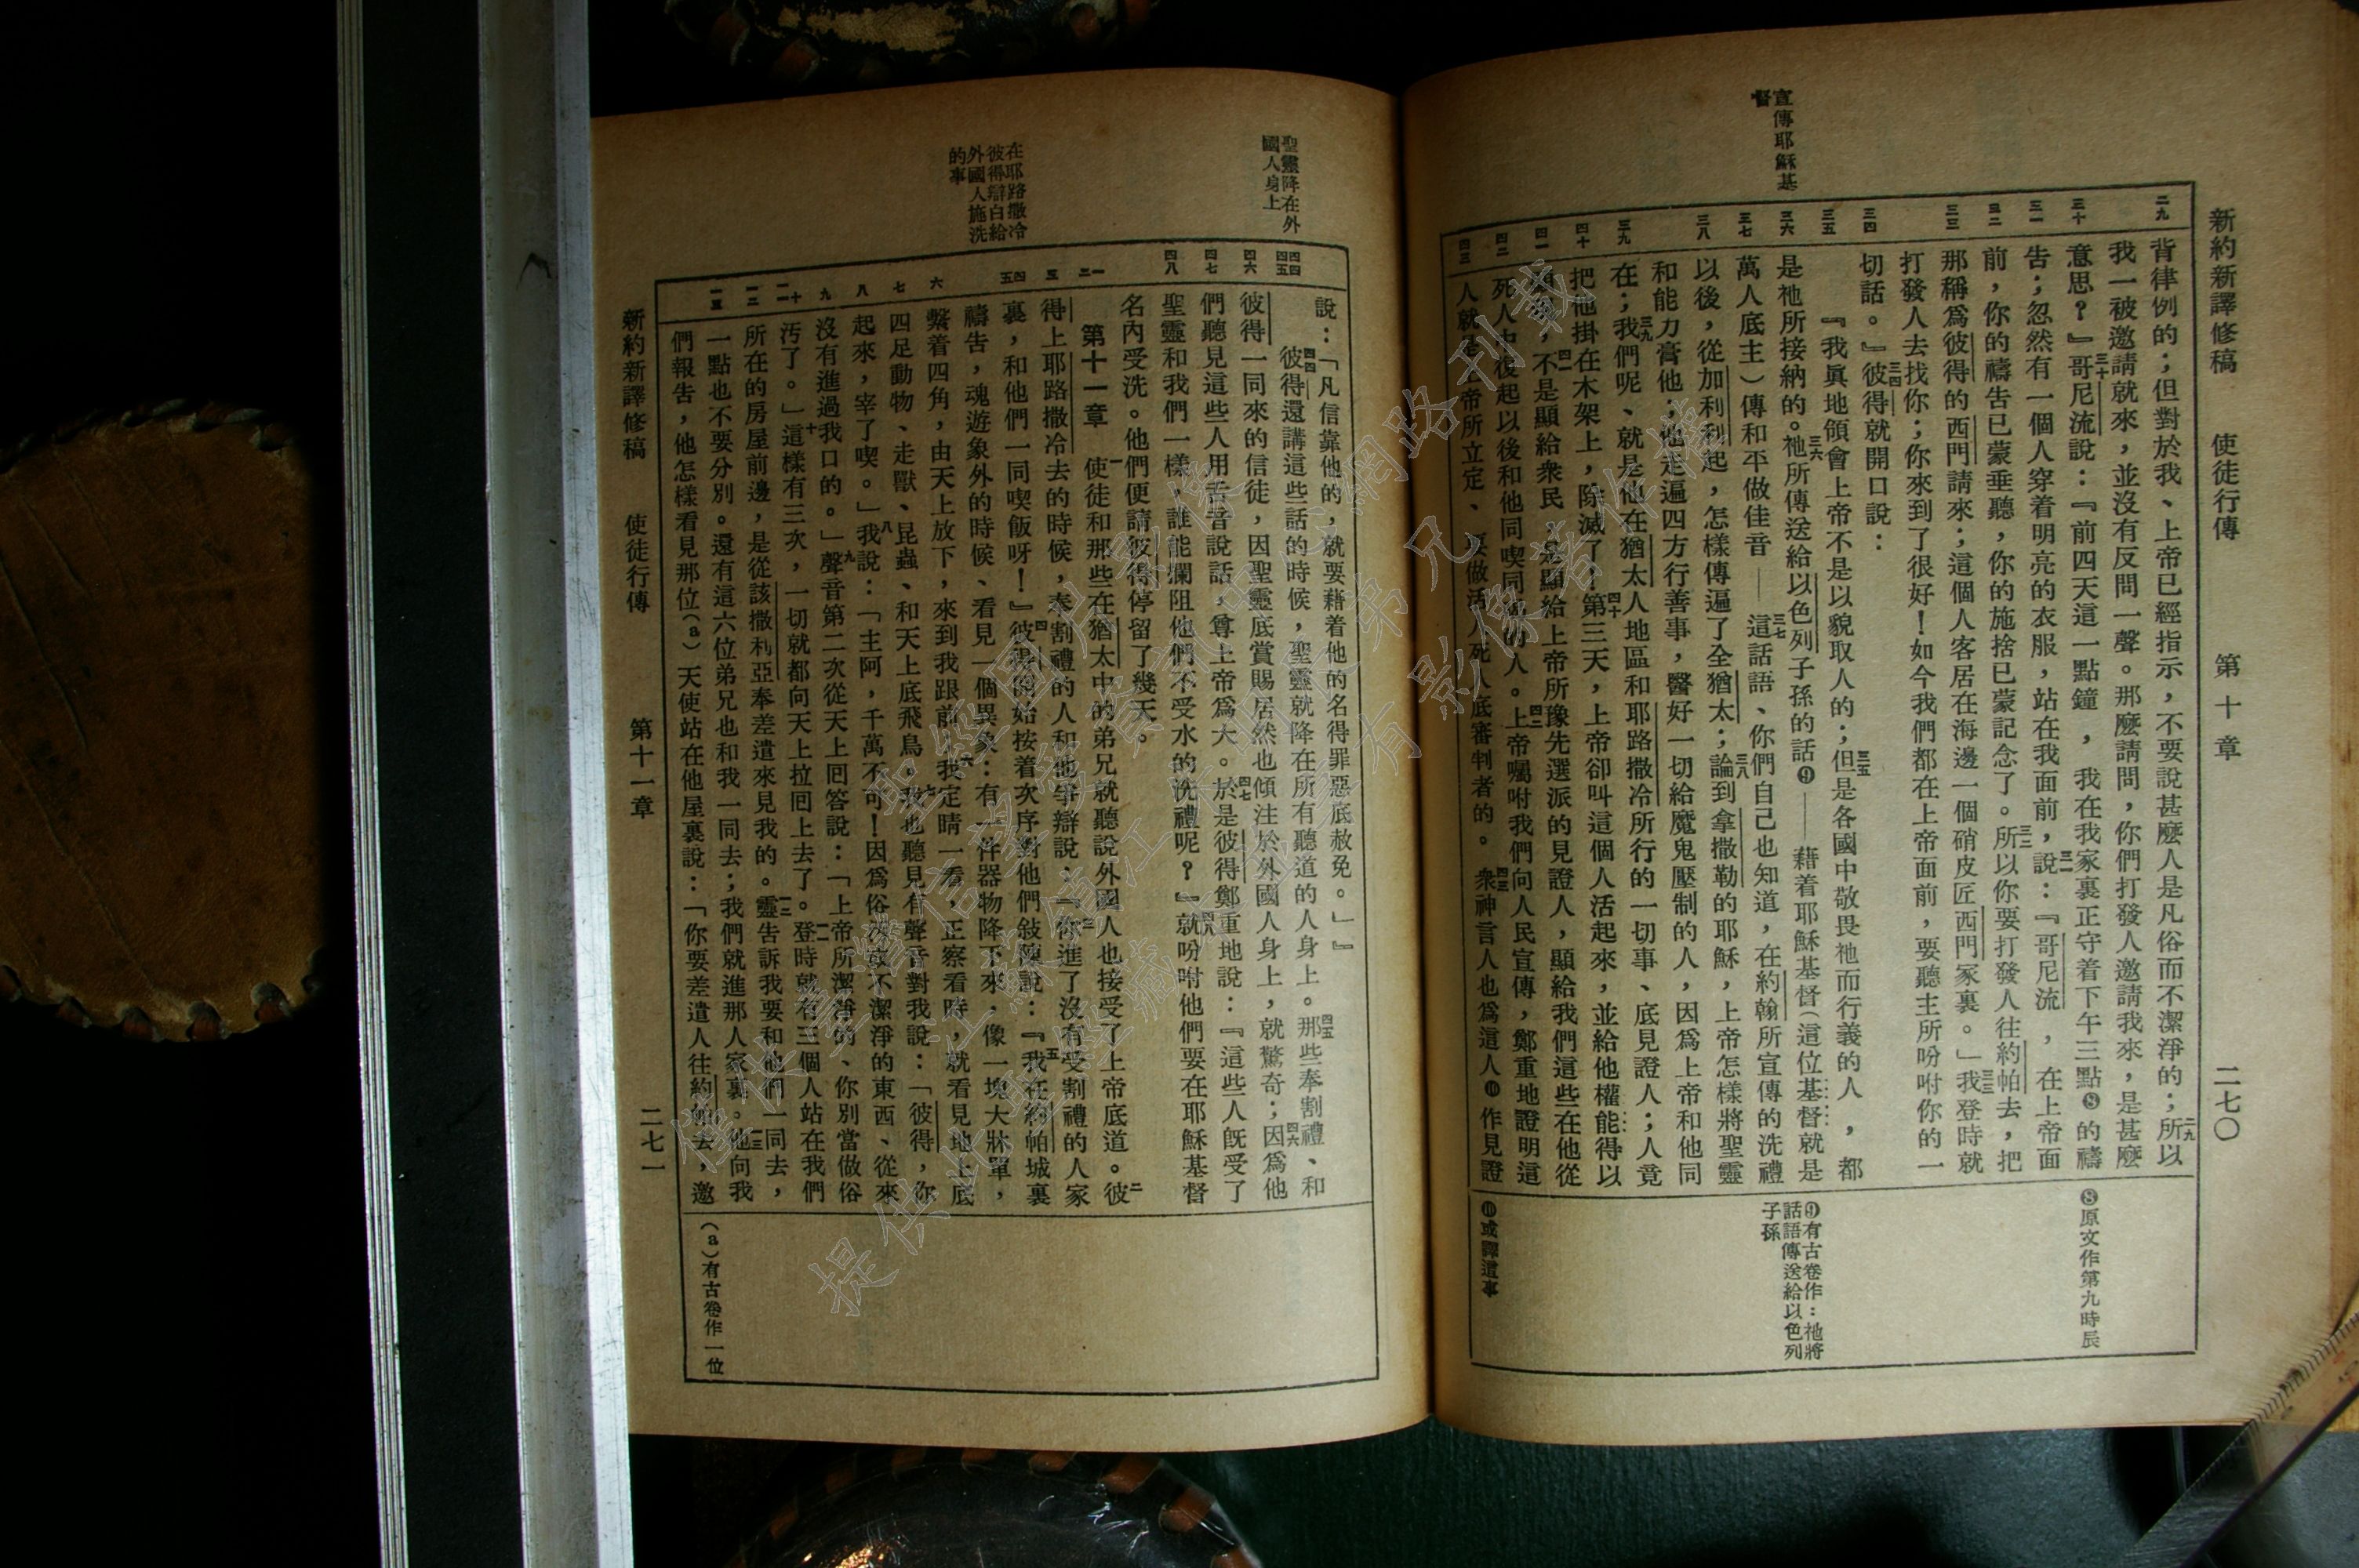 新約新譯修稿 使徒行傳 第十章 二七〇
宣傳耶穌基
督
二九 三十 三一 三二 三三 三四 三五 三六 三七 三八 三九 四十 四一 四二 四三
背律例的；但對於我、上帝已經指示，不要說甚麼人是凡俗而不潔淨的；二九所以
我一被邀請就來，並沒有反問一聲。那麼請問，你們打發人邀請我來，是甚麼
意思？』三十哥尼流說：『前四天這一點鐘，我在我家裏正守着下午三點❽的禱
告；忽然有一個人穿着明亮的衣服，站在我面前，三一說：『哥尼流，在上帝面
前，你的禱告已蒙垂聽，你的施捨已蒙記念了。三二所以你要打發人往約帕去，把
那稱爲彼得的西門請來；這個人客居在海邊一個硝皮匠西門家裏。」三三我登時就
打發人去找你；你來到了很好！如今我們都在上帝面前，要聽主所吩咐你的一
切話。』三四彼得就開口說：
『我眞地領會上帝不是以貌取人的；三五但是各國中敬畏祂而行義的人，都
是祂所接納的。三六祂所傳送給以色列子孫的話❾——藉着耶穌基督（這位基督就是
萬人底主）傳和平做佳音——三七這話語、你們自己也知道，在約翰所宣傳的洗禮
以後，從加利利起，怎樣傳遍了全猶太；三八論到拿撒勒的耶穌，上帝怎樣將聖靈
和能力膏他；他走遍四方行善事，醫好一切給魔鬼壓制的人，因爲上帝和他同
在；三九我們呢、就是他在猶太人地區和耶路撒冷所行的一切事、底見證人；人竟
把他掛在木架上，除滅了！四十第三天，上帝卻叫這個人活起來，並給他權能得以
，四一不是顯給衆民；是顯給上帝所豫先選派的見證人，顯給我們這些在他從
死人中復起以後和他同喫同的人。四二上帝囑咐我們向人民宣傳，鄭重地證明這
人就是上帝所立定、要做活人死人底審判者的。四三衆神言人也爲這人❿作見證
❽原文作第九時辰
❾有古卷作：祂將
話語傳送給以色列
子孫
❿或譯這事
聖靈降在外
國人身上
在耶路撒冷
彼得辯白給
外國人施洗
的事
四四 四五 四六 四七 四八 一 二 三 四 五 六 七 八 九 十 一一 一二 一三
說：「凡信靠他的，就要藉着他的名得罪惡底赦免。」』
四四彼得還講這些話的時候，聖靈就降在所有聽道的人身上。四五那些奉割禮、和
彼得一同來的信徒，因聖靈底賞賜居然也傾注於外國人身上，就驚奇；四六因爲他
們聽見這些人用舌音說話，尊上帝爲大。四七於是彼得鄭重地說：『這些人旣受了
聖靈和我們一樣，誰能攔阻他們不受水的洗禮呢？』四八就吩咐他們要在耶穌基督
名內受洗。他們便請彼得停留了幾天。
第十一章 一使徒和那些在猶太中的弟兄就聽說外國人也接受了上帝底道。二彼
得上耶路撒冷去的時候，奉割禮的人和他爭辯說：三『你進了沒有受割禮的人家
裏，和他們一同喫飯呀！』四彼得開始按着次序對他們敍陳說：五『我在約帕城裏
禱告，魂遊象外的時候、看見一個異象：有一件器物降下來，像一塊大牀單，
繫着四角，由天上放下，來到我跟前。六我定睛一看，正察看時，就看見地上底
四足動物、走獸、昆蟲、和天上底飛鳥。七我也聽見有聲音對我說：「彼得，你
起來，宰了喫。」八我說：「主阿，千萬不可！因爲俗汚或不潔淨的東西、從來
沒有進過我口的。」九聲音第二次從天上囘答說：「上帝所潔淨的、你別當做俗
汚了。」十這樣有三次，一切就都向天上拉囘上去了。一一登時就有三個人站在我們
所在的房屋前邊，是從該撒利亞奉差遣來見我的。一二靈告訴我要和他們一同去，
一點也不要分別。還有這六位弟兄也和我一同去；我們就進那人家裏。一三他向我
們報告，他怎樣看見那位（a）天使站在他屋裏說：「你要差遣人往約帕去，邀
（a）有古卷作一位
新約新譯修稿 使徒行傳 第十一章 二七一